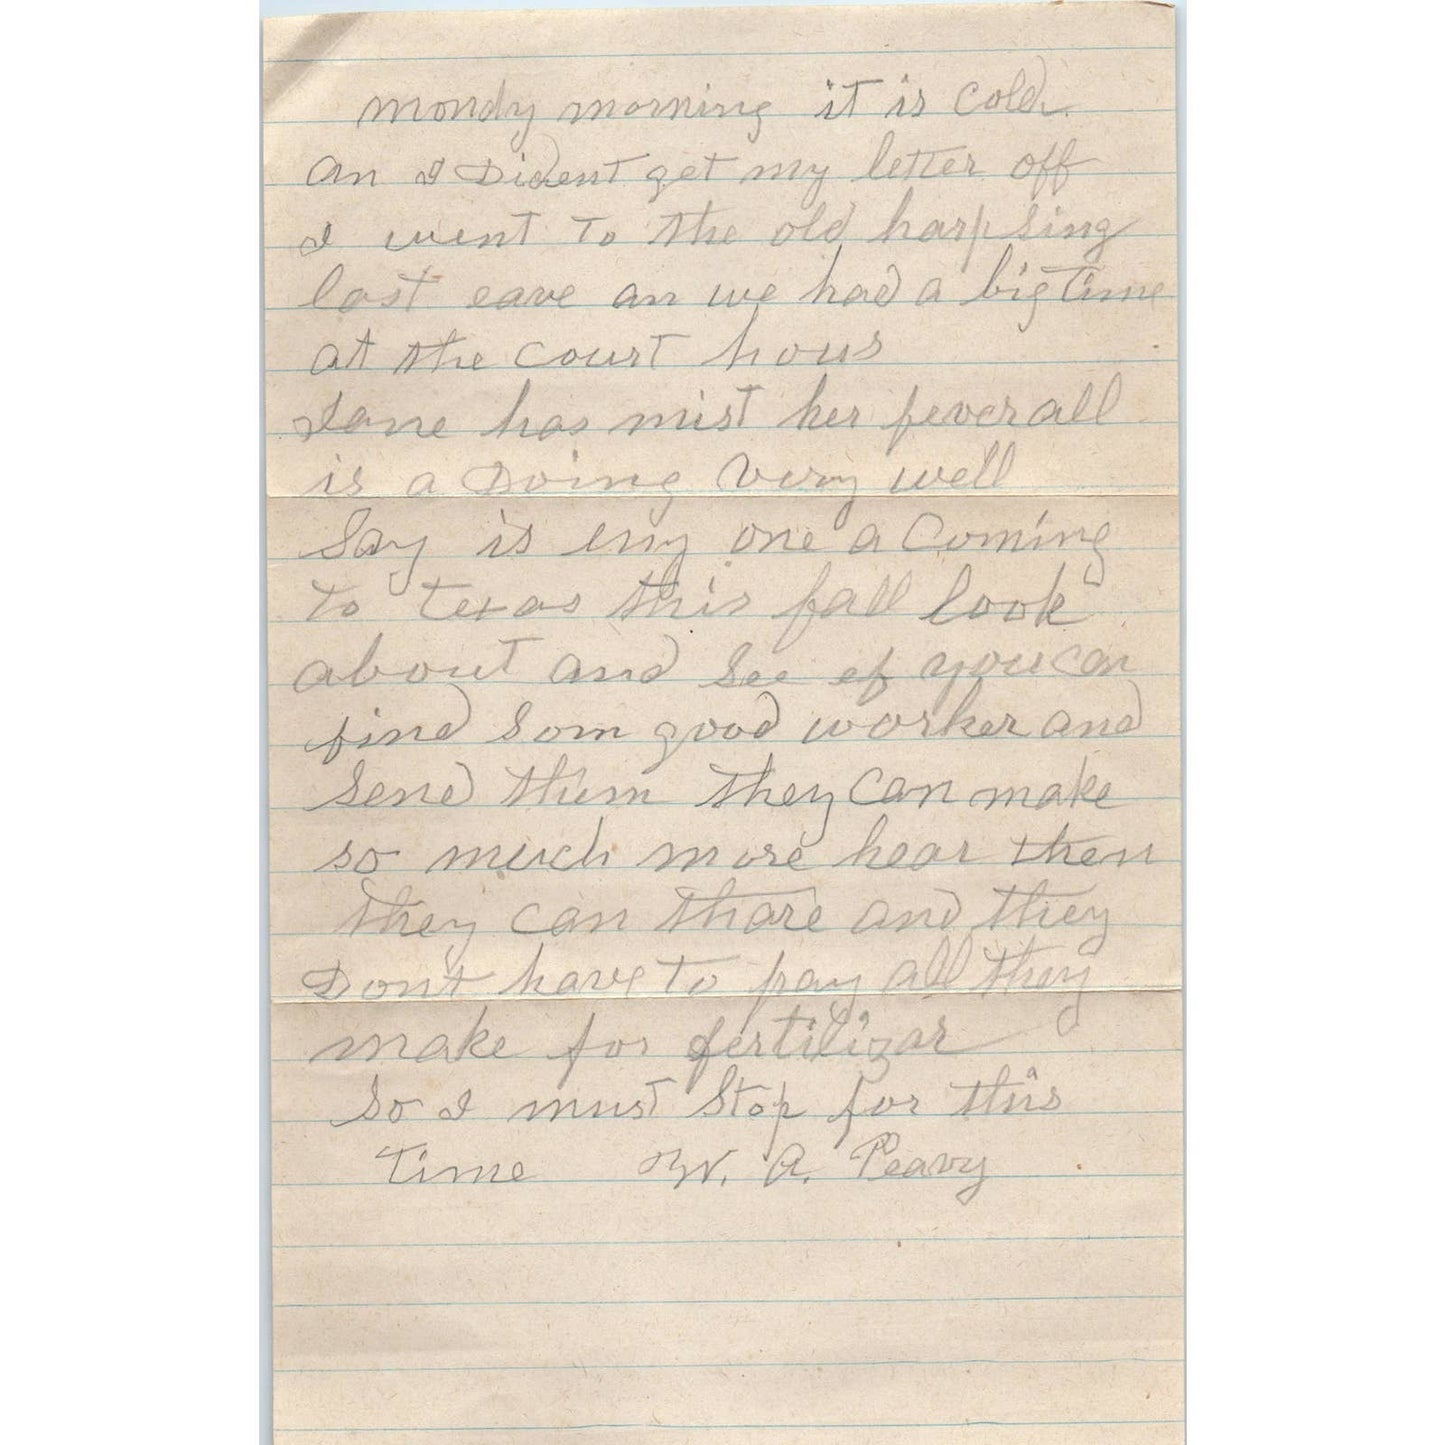 mondy morning it is cold
an I Dident get my letter off
I went to the old harp sing
last eave an we had a big time
at the court hous
Jane has mist her fever all
is a Doing very well
Say is eny one a Coming
to texas this fall look
about and see ef you can
find som good worker and
send them they can make
so much more hear then
they can thare and they
Dont have to pay all they
make for fertilizar
So I must stop for this
time W. A. Peavy